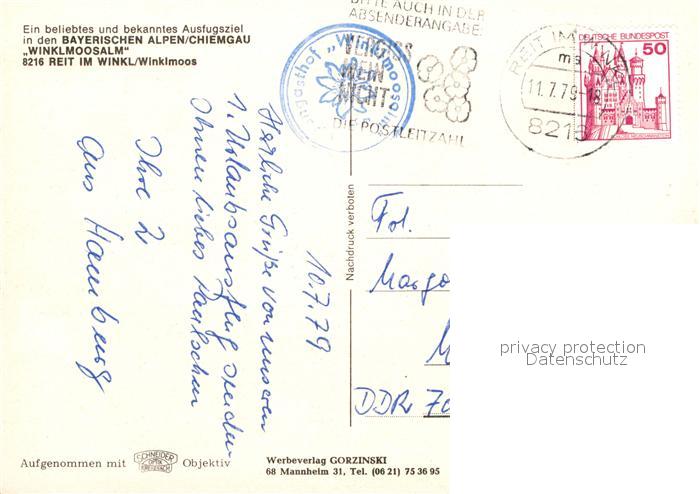 Ein beliebtes und bekanntes Ausfugsziel
in den BAYERISCHEN ALPEN/CHIEMGAU
„WINKLMOOSALM"
8216 REIT IM WINKL/Winklmoos
BITTE AUCH IN DER
ABSENDERANGABE:
VERGISS
MEIN
NICHT
DIE POSTLEITZAHL
Berggasthof „Winklmoosalm"
REIT IM
ms
11.7.79-18
8216
DEUTSCHE BUNDESPOST
50
10.7.79
Herzliche Grüße von unserem
1. Urlaubsausflug senden
Ihnen liebes
Ihre 2
aus Hamburg
Nachdruck verboten
Margo
DDR 70
privacy protection
Datenschutz
Aufgenommen mit SCHNEIDER OPTIK KREUZNACH Objektiv
Werbeverlag GORZINSKI
68 Mannheim 31, Tel. (06 21) 75 36 95